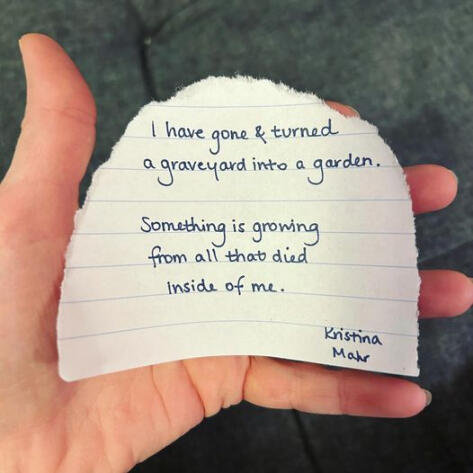 I have gone & turned
a graveyard into a garden.
Something is growing
from all that died
inside of me.
Kristina
Mahr